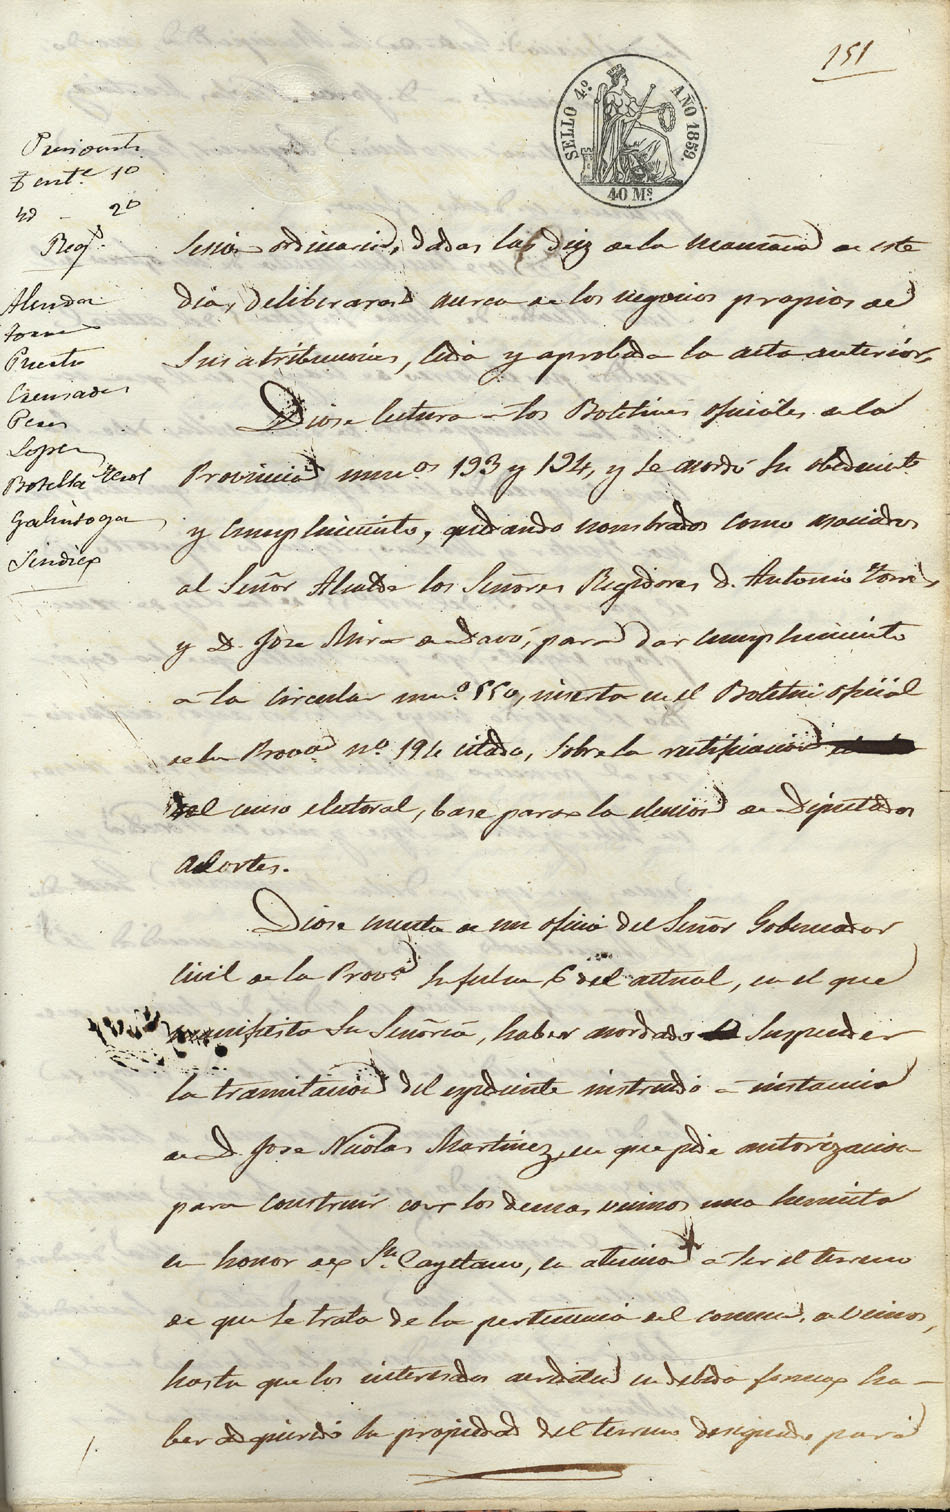 151
SELLO 4º AÑO 1859.
40 Mˢ
Presidente
Tente. 1º
Yd - 2º
Regs.
Torres
Puerto
Perez
Lopez
Botella
Galinsoga
Sindico
Sesion ordinaria, dadas las diez de la mañana de este
dia, deliberaron acerca de los negocios propios de
sus atribuciones, leida y aprobada la acta anterior.
Diose lectura a los Boletines oficiales de la
Provincia numos 193 y 194, y se acordó su obedecimto
y cumplimiento, quedando nombrados como asociados
al Señor Alcalde los Señores Regidores D. Antonio Torres
y D. Jose Mira de Davó, para dar cumplimiento
a la circular numo 550, inserta en el Boletin oficial
de la Provª nº 194 citado, sobre la rectificacion
del censo electoral, base para la eleccion de Diputados
a Cortes.
Diose cuenta de un oficio del Señor Gobernador
Civil de la Provª su fecha 6 del actual, en el que
manifiesta Su Señoria, haber acordado suspender
la tramitacion del expediente instruido a instancia
de D. Jose Nicolas Martinez, en que pide autorizacion
para construir con los demas vecinos una hermita
en honor de Sn. Cayetano, en atencion a ser el terreno
de que se trata de la pertenencia del comun de vecinos,
hasta que los interesados acrediten en debida forma ha-
ber adquirido la propiedad del terreno designado para